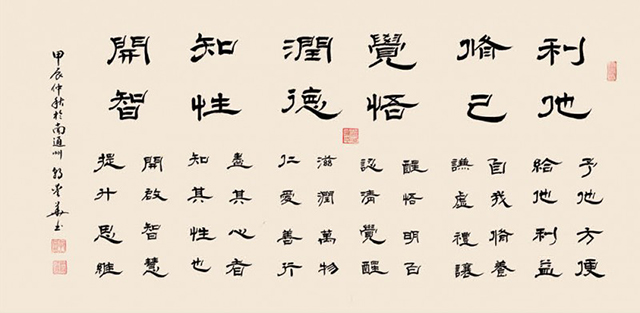 利他
脩己
覺悟
潤德
知性
開智
予他方便
給他利益
自我脩養
謙虛禮讓
醒悟明白
認清覺醒
滋潤萬物
仁愛善行
盡其心者
知其性也
開啟智慧
提升思維
甲辰仲秋於南通州 華書